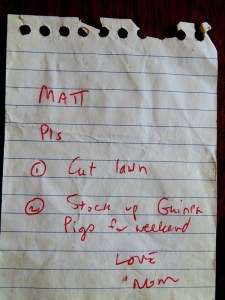 MATT
Pls
① Cut lawn
② Stock up Guinea
Pigs for weekend
LOVE
Mom